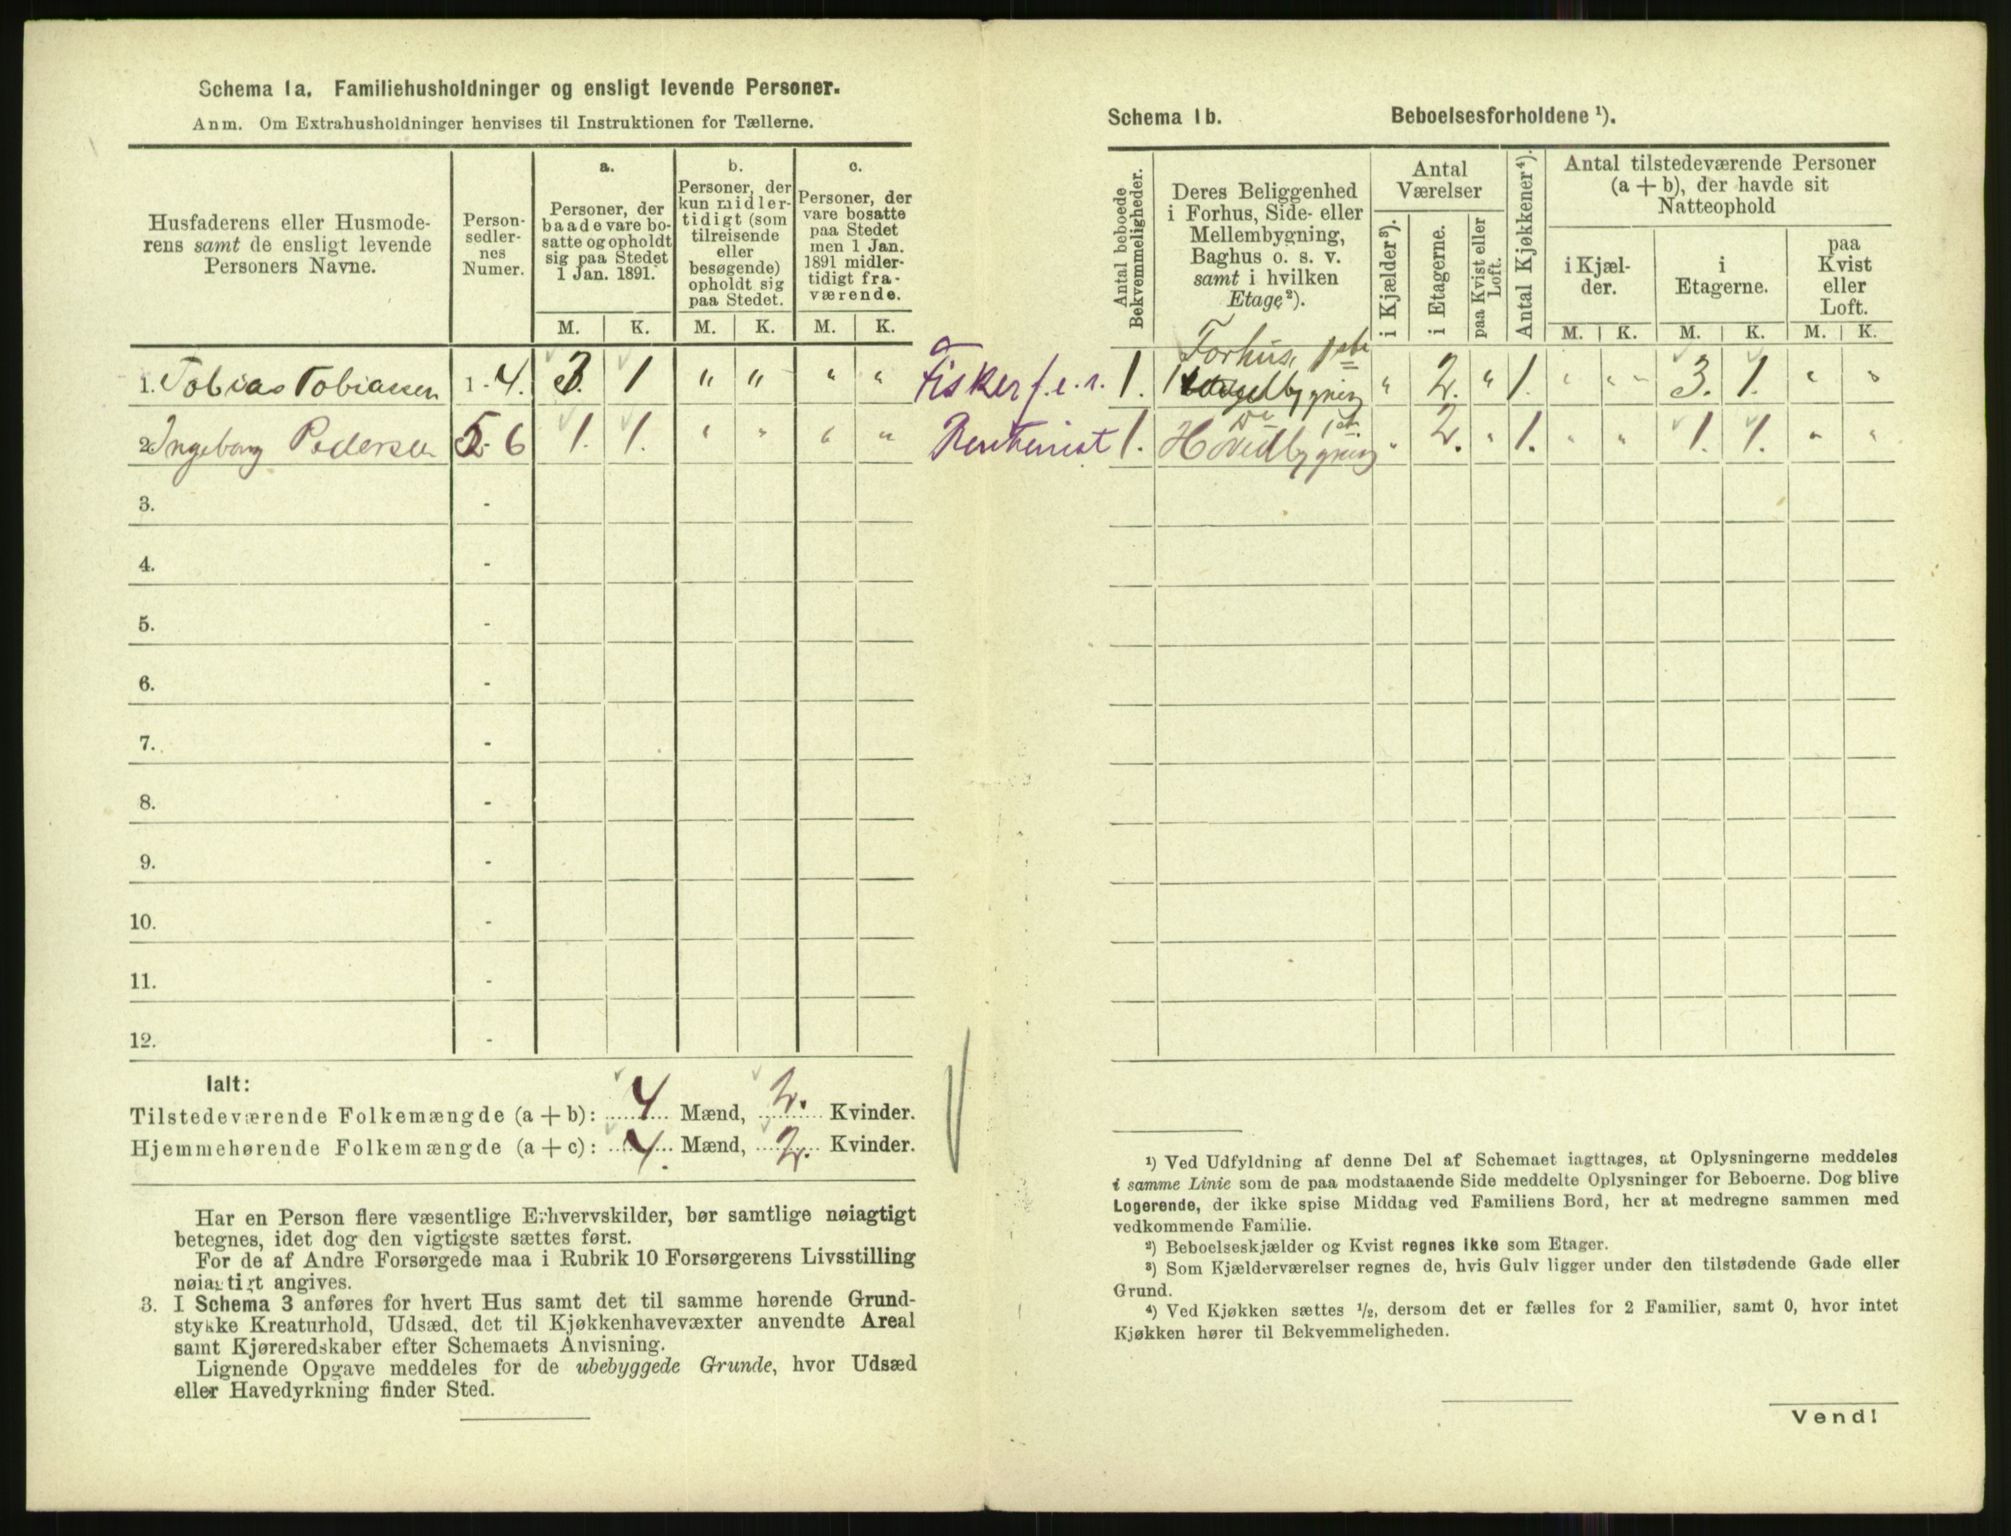 Schema 1a. Familiehusholdninger og ensligt levende Personer.
Anm. Om Extrahusholdninger henvises til Instruktionen for Tællerne.
Husfaderens eller Husmode-
rens samt de ensligt levende
Personers Navne.
Person-
sedler-
nes
Numer.
a.
Personer, der
baade vare bo-
satte og opholdt
sig paa Stedet
1 Jan. 1891.
b.
Personer, der
kun midler-
tidigt (som
tilreisende
eller
besøgende)
opholdt sig
paa Stedet.
c.
Personer, der
vare bosatte
paa Stedet
men 1 Jan.
1891 midler-
tidigt fra-
værende.
M. K. M. K. M. K.
1. Tobias Tobiassen 1-4. 3. 1 " " " "
2 Ingeborg Pedersen 5-6 1. 1. " " " "
3. -
4. -
5. -
6. -
7. -
8. -
9. -
10. -
11. -
12. -
Ialt:
Tilstedeværende Folkemængde (a+b): 4 Mænd, 2. Kvinder.
Hjemmehørende Folkemængde (a+c): 4. Mænd, 2. Kvinder.
Har en Person flere væsentlige Erhvervskilder, bør samtlige nøiagtigt
betegnes, idet dog den vigtigste sættes først.
For de af Andre Forsørgede maa i Rubrik 10 Forsørgerens Livsstilling
nøiagtigt angives.
3. I Schema 3 anføres for hvert Hus samt det til samme hørende Grund-
stykke Kreaturhold, Udsæd, det til Kjøkkenhavevæxter anvendte Areal
samt Kjøreredskaber efter Schemaets Anvisning.
Lignende Opgave meddeles for de ubebyggede Grunde, hvor Udsæd
eller Havedyrkning finder Sted.
Schema 1b. Beboelsesforholdene ¹).
Antal beboede
Bekvemmeligheder.
Deres Beliggenhed
i Forhus, Side- eller
Mellembygning,
Baghus o. s. v.
samt i hvilken
Etage²).
Antal
Værelser
i Kjælder³).
i Etagerne.
paa Kvist eller
Loft.
Antal Kjøkkener⁴).
Antal tilstedeværende Personer
(a + b), der havde sit
Natteophold
i Kjæl-
der.
i
Etagerne.
paa
Kvist
eller
Loft.
M. K. M. K. M. K.
Fisker f. e. r. 1. Forhus, 1ste " 2. " 1. " " 3. 1. " "
Rentenist 1. Do 1st. Hovedbygning " 2. " 1. " " 1. 1. " "
¹) Ved Udfyldning af denne Del af Schemaet iagttages, at Oplysningerne meddeles
i samme Linie som de paa modstaaende Side meddelte Oplysninger for Beboerne. Dog blive
Logerende, der ikke spise Middag ved Familiens Bord, her at medregne sammen med
vedkommende Familie.
²) Beboelseskjælder og Kvist regnes ikke som Etager.
³) Som Kjælderværelser regnes de, hvis Gulv ligger under den tilstødende Gade eller
Grund.
⁴) Ved Kjøkken sættes ¹/₂, dersom det er fælles for 2 Familier, samt 0, hvor intet
Kjøkken hører til Bekvemmeligheden.
Vend!